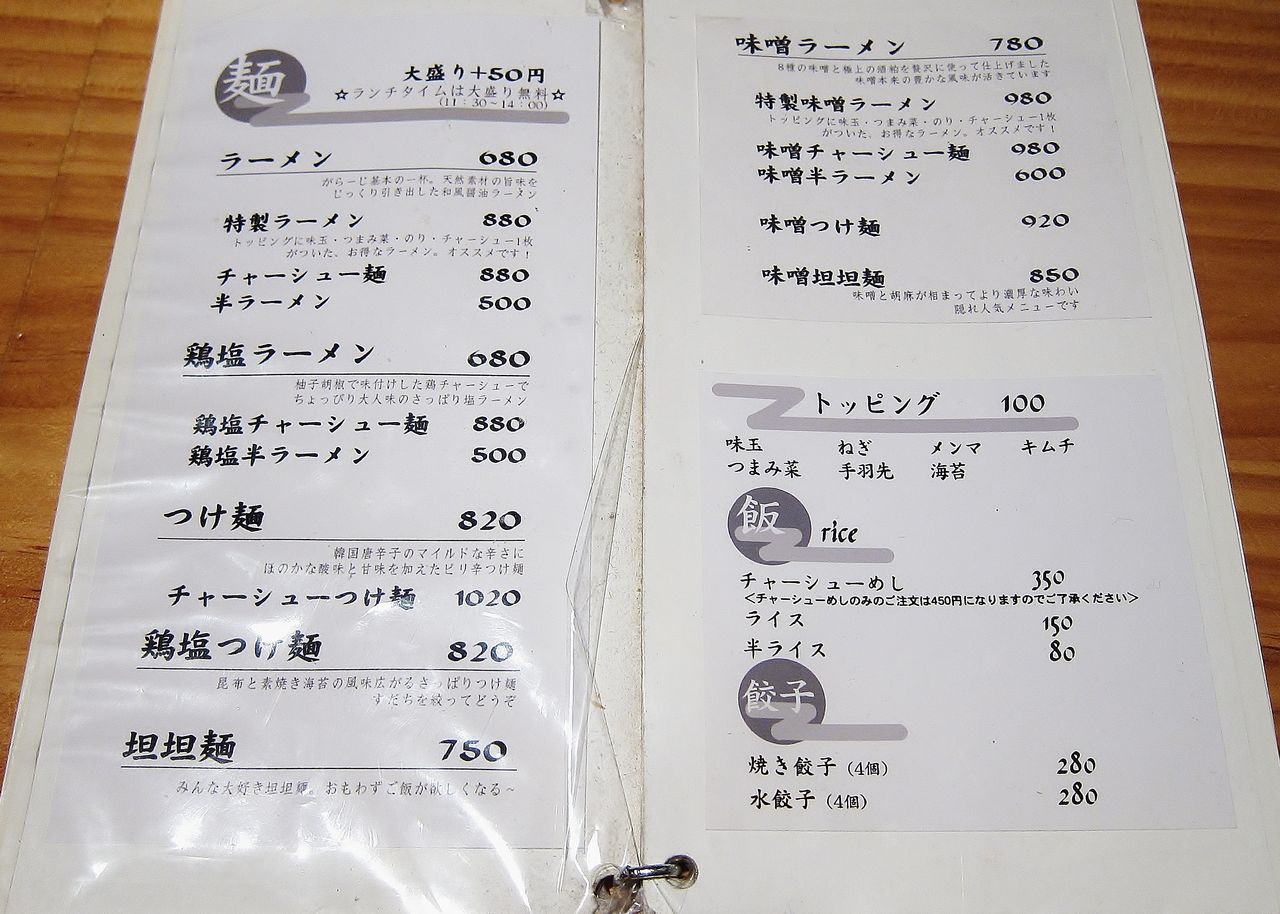 麺
大盛り+50円
☆ランチタイムは大盛り無料☆
(11:30~14:00)
ラーメン 680
がらーじ基本の一杯。天然素材の旨味を
じっくり引き出した和風醤油ラーメン
特製ラーメン 880
トッピングに味玉・つまみ菜・のり・チャーシュー1枚
がついた、お得なラーメン。オススメです!
チャーシュー麺 880
半ラーメン 500
鶏塩ラーメン 680
柚子胡椒で味付けした鶏チャーシューで
ちょっぴり大人味のさっぱり塩ラーメン
鶏塩チャーシュー麺 880
鶏塩半ラーメン 500
つけ麺 820
韓国唐辛子のマイルドな辛さに
ほのかな酸味と甘味を加えたピリ辛つけ麺
チャーシューつけ麺 1020
鶏塩つけ麺 820
昆布と素焼き海苔の風味広がるさっぱりつけ麺
すだちを絞ってどうぞ
坦坦麺 750
みんな大好き坦坦麺。おもわずご飯が欲しくなる~
味噌ラーメン 780
8種の味噌と極上の酒粕を贅沢に使って仕上げました
味噌本来の豊かな風味が活きています
特製味噌ラーメン 980
トッピングに味玉・つまみ菜・のり・チャーシュー1枚
がついた、お得なラーメン。オススメです!
味噌チャーシュー麺 980
味噌半ラーメン 600
味噌つけ麺 920
味噌坦坦麺 850
味噌と胡麻が相まってより濃厚な味わい
隠れ人気メニューです
トッピング 100
味玉 ねぎ メンマ キムチ
つまみ菜 手羽先 海苔
飯 rice
チャーシューめし 350
<チャーシューめしのみのご注文は450円になりますのでご了承ください>
ライス 150
半ライス 80
餃子
焼き餃子(4個) 280
水餃子(4個) 280